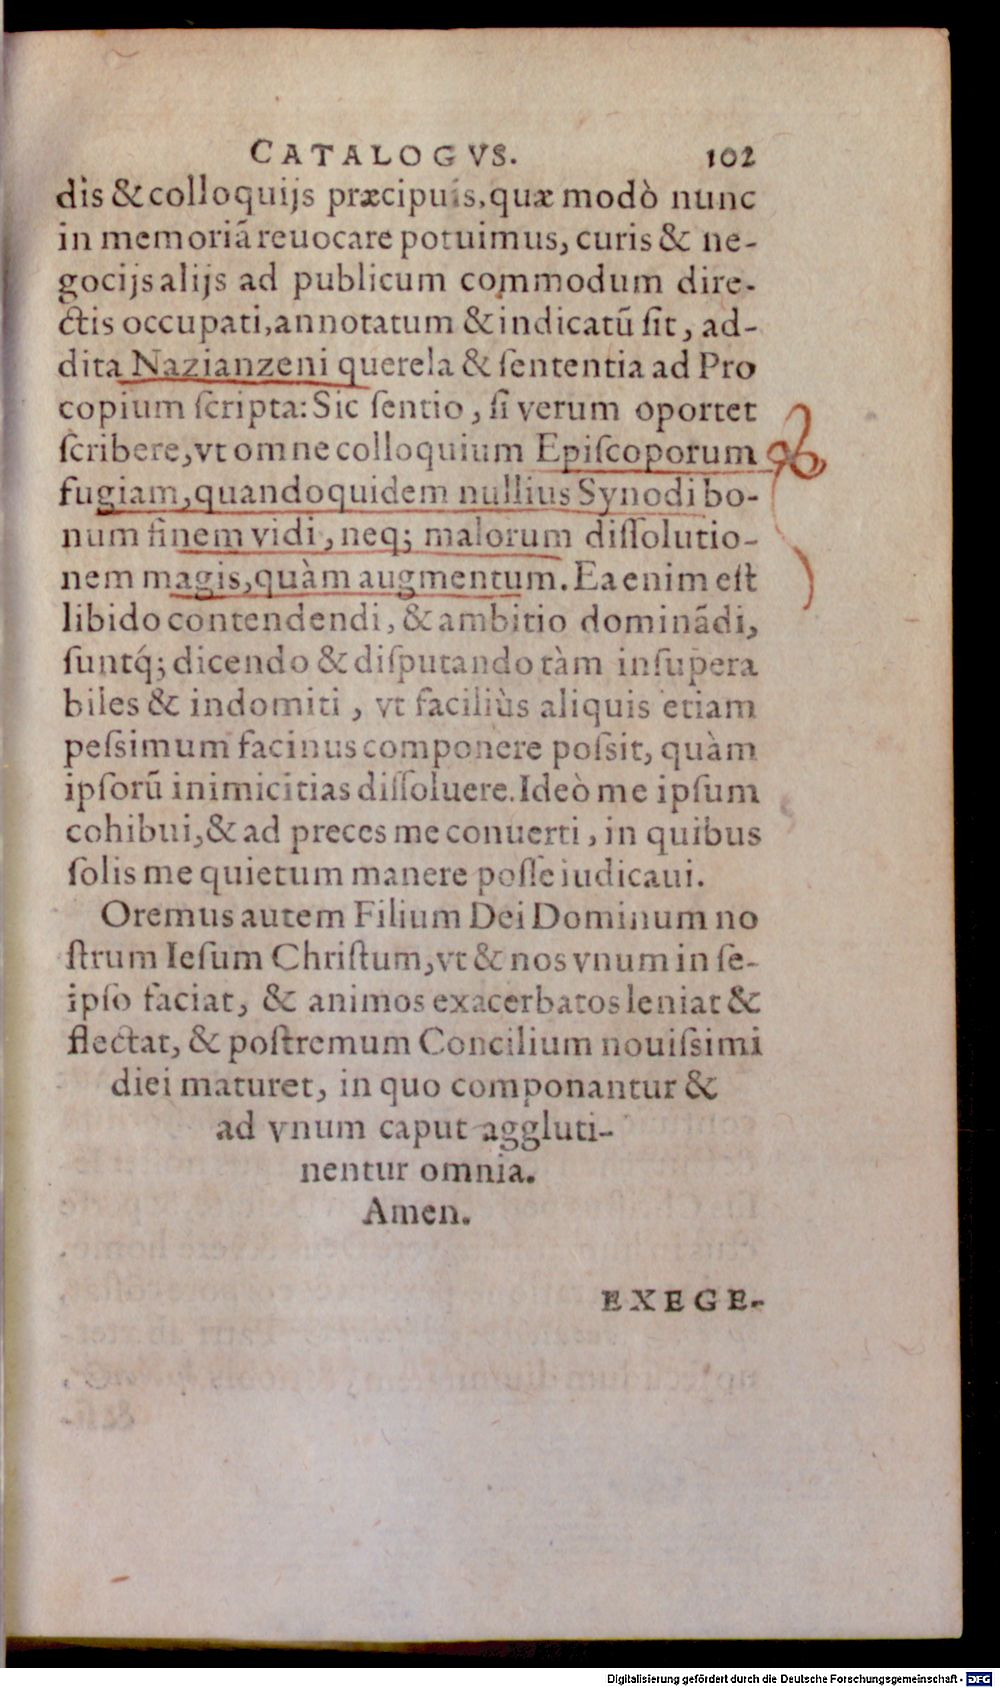 CATALOGVS. 102
dis & colloquijs præcipuis, quæ modò nunc
in memoriã reuocare potuimus, curis & ne-
gocijs alijs ad publicum commodum dire-
ctis occupati, annotatum & indicatũ ſit, ad-
dita Nazianzeni querela & ſententia ad Pro
copium ſcripta: Sic ſentio, ſi verum oportet
ſcribere, vt omne colloquium Epiſcoporum
fugiam, quandoquidem nullius Synodi bo-
num finem vidi, neq; malorum diſſolutio-
nem magis, quàm augmentum. Ea enim eſt
libido contendendi, & ambitio dominãdi,
ſuntq́; dicendo & diſputando tàm inſupera
biles & indomiti, vt faciliùs aliquis etiam
peſsimum facinus componere poſsit, quàm
ipſorũ inimicitias diſſoluere. Ideò me ipſum
cohibui, & ad preces me conuerti, in quibus
ſolis me quietum manere poſſe iudicaui.
Oremus autem Filium Dei Dominum no
ſtrum Ieſum Chriſtum, vt & nos vnum in ſe-
ipſo faciat, & animos exacerbatos leniat &
flectat, & poſtremum Concilium nouiſsimi
diei maturet, in quo componantur &
ad vnum caput aggluti-
nentur omnia.
Amen.
EXEGE-
Digitalisierung gefördert durch die Deutsche Forschungsgemeinschaft - DFG